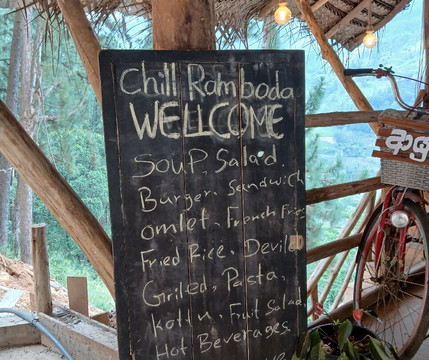 Chill Ramboda
WELLCOME
Soup, Salad,
Burger, Sandwich
omlet, French Fries
Fried Rice, Devil
Griled, Pasta,
Kottu, Fruit Salad,
Hot Beverages